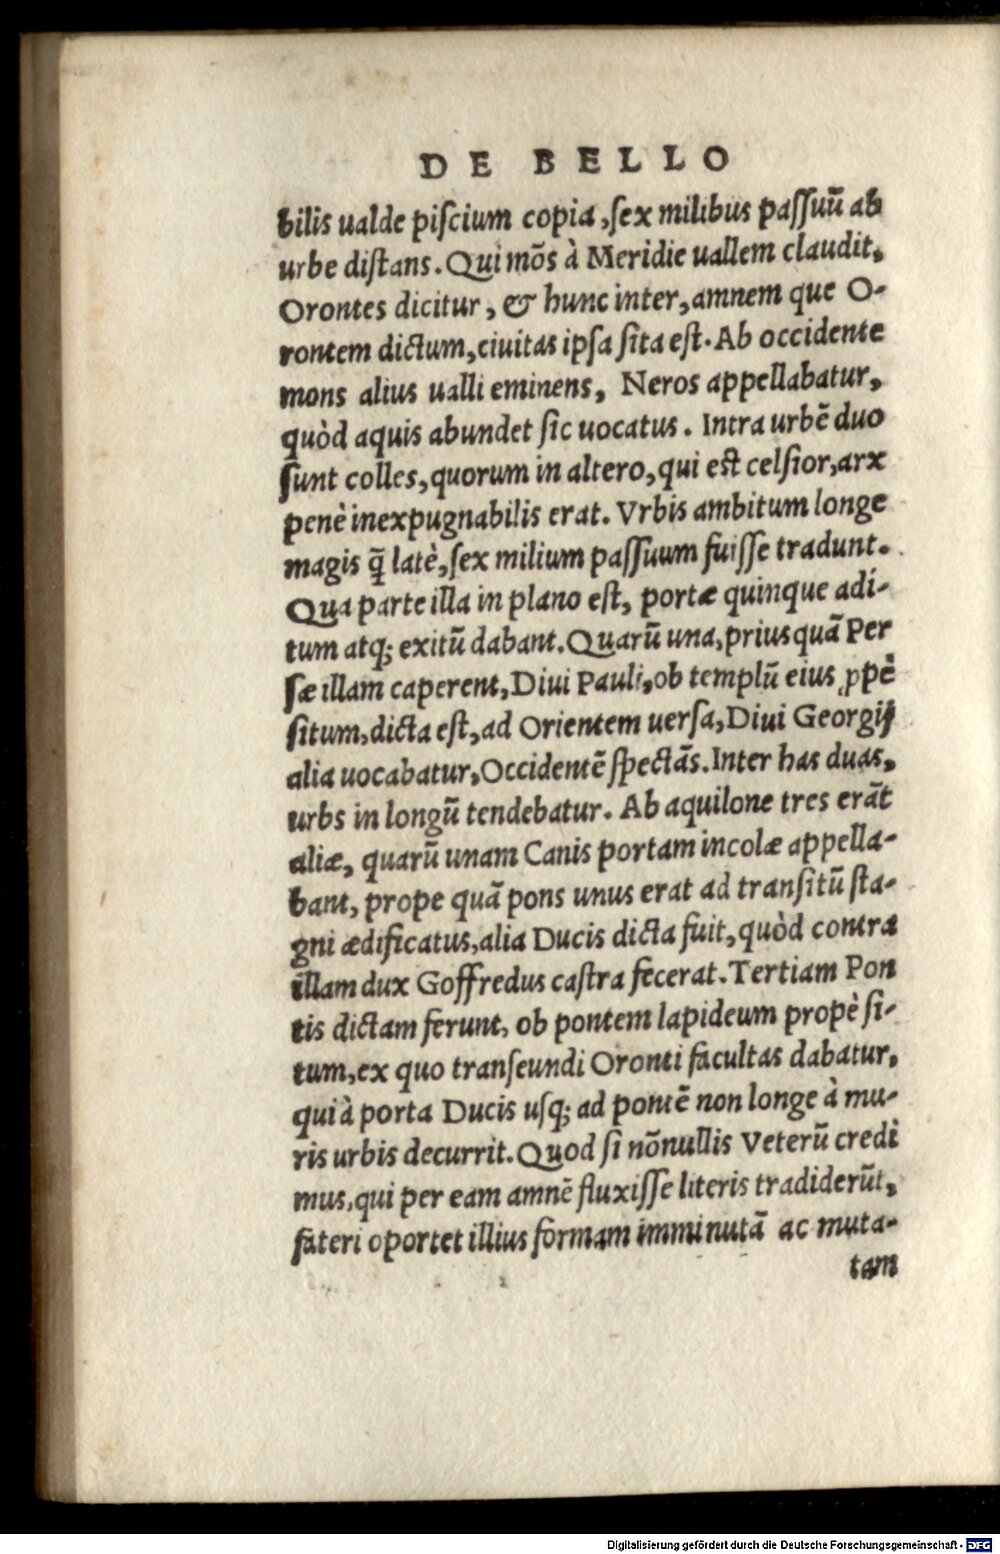 DE BELLO
bilis ualde piſcium copia, ſex milibus paſſuũ ab
urbe diſtans. Qui mõs à Meridie uallem claudit,
Orontes dicitur, & hunc inter, amnem que O-
rontem dictum, ciuitas ipſa ſita eſt. Ab occidente
mons alius ualli eminens, Neros appellabatur,
quòd aquis abundet ſic uocatus. Intra urbẽ duo
ſunt colles, quorum in altero, qui eſt celſior, arx
penè inexpugnabilis erat. Vrbis ambitum longe
magis q̃ latè, ſex milium paſſuum fuiſſe tradunt.
Qua parte illa in plano eſt, portæ quinque adi-
tum atq; exitũ dabant. Quarũ una, prius quã Per
ſæ illam caperent, Diui Pauli, ob templũ eius ꝓpè
ſitum, dicta eſt, ad Orientem uerſa, Diui Georgij
alia uocabatur, Occidentẽ ſpectãs. Inter has duas,
urbs in longũ tendebatur. Ab aquilone tres erãt
aliæ, quarũ unam Canis portam incolæ appella-
bant, prope quã pons unus erat ad tranſitũ ſta-
gni ædificatus, alia Ducis dicta fuit, quòd contra
illam dux Goffredus caſtra fecerat. Tertiam Pon
tis dictam ferunt, ob pontem lapideum propè ſi-
tum, ex quo tranſeundi Oronti facultas dabatur,
qui à porta Ducis uſq; ad pontẽ non longe à mu-
ris urbis decurrit. Quod ſi nõnullis Veterũ credi
mus, qui per eam amnẽ fluxiſſe literis tradiderũt,
fateri oportet illius formam imminutã ac muta-
tam
Digitalisierung gefördert durch die Deutsche Forschungsgemeinschaft - DFG